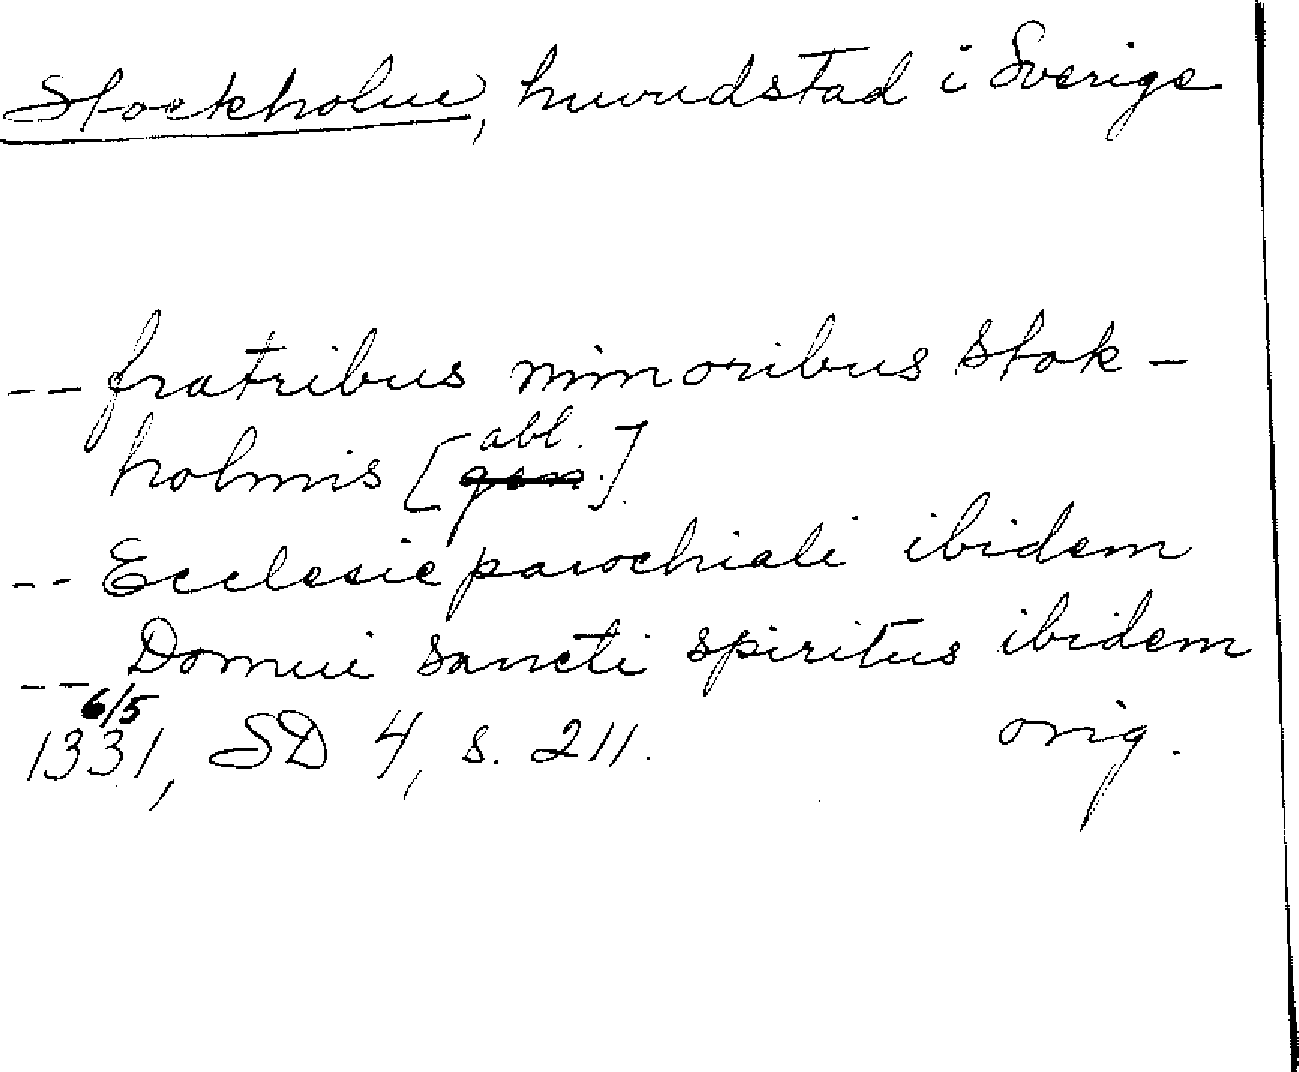 Stockholm, huvudstad i Sverige
-- fratribus minoribus Stok-
holmis [abl.]
-- Ecclesie parochiali ibidem
-- Domui sancti spiritus ibidem
6/5
1331, SD 4, s. 211. orig.